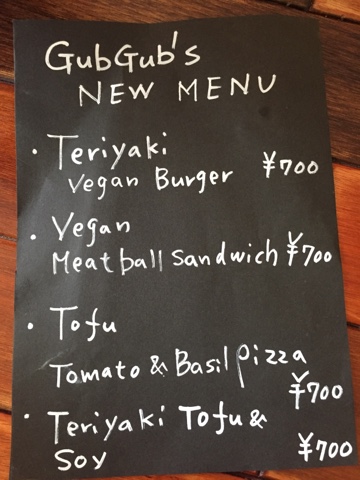 GubGub's
NEW MENU
· Teriyaki
Vegan Burger ¥700
· Vegan
Meatball Sandwich ¥700
· Tofu
Tomato & Basil Pizza
¥700
· Teriyaki Tofu &
Soy ¥700